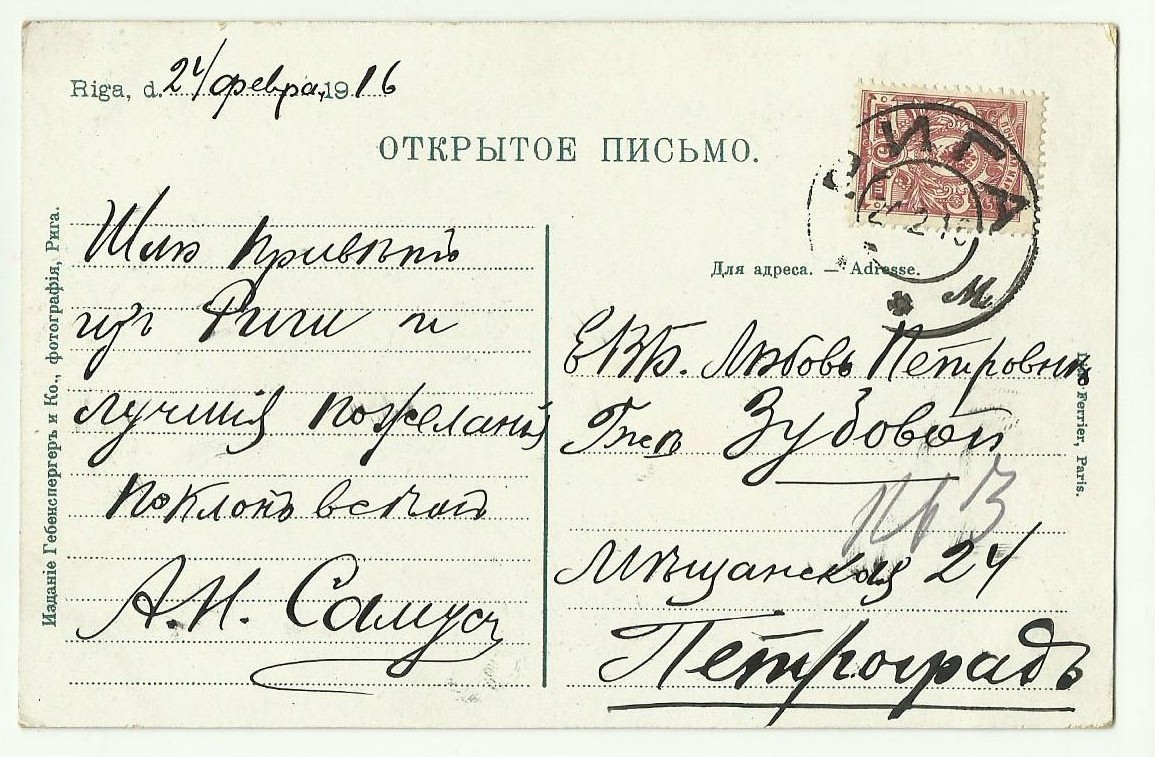 Riga, d. 24/февра, 1916
ОТКРЫТОЕ ПИСЬМО.
РИГА
Для адреса. — Adresse.
Шлю привѣтъ
изъ Риги и
лучшія пожеланія
поклонъ всѣмъ
А.И. Самусь
ЕВБ. Любовь Петровнѣ
Гжѣ Зубовой
Мѣщанская 24
Петроградъ
Изданіе Гебенспергеръ и Ко., фотографія, Рига.
Ferrier, Paris.